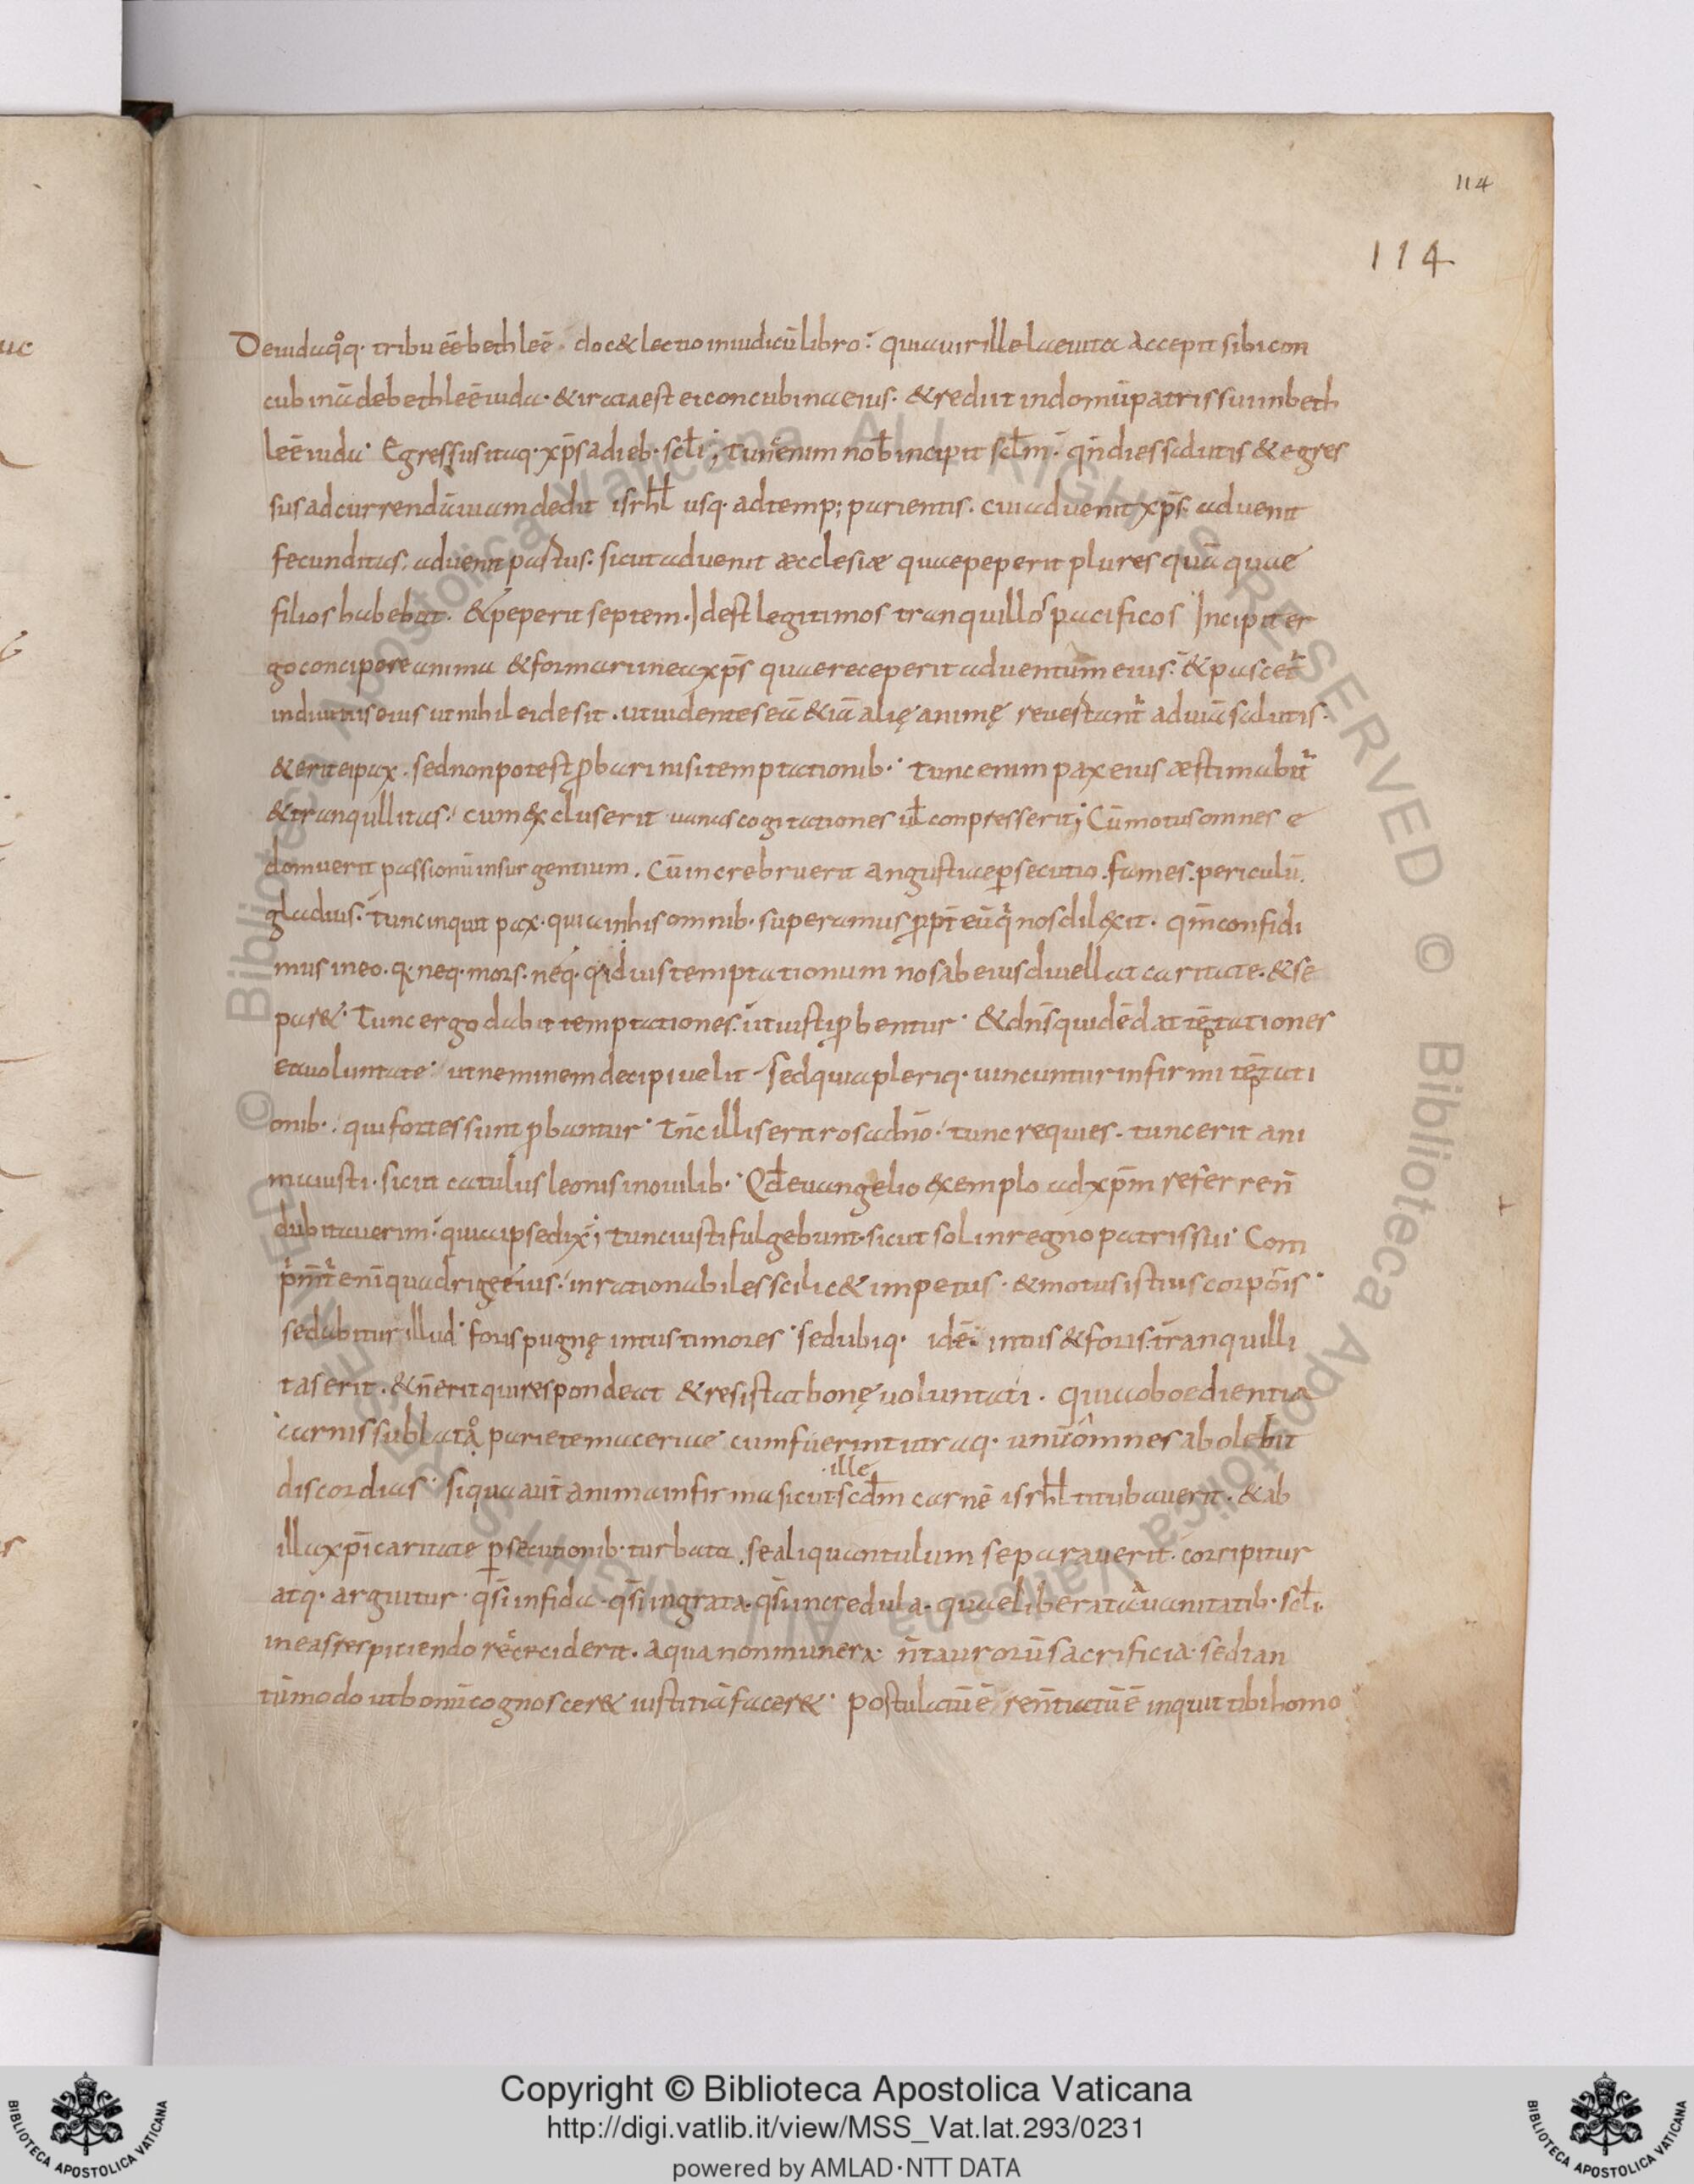 114
114
De iuda qoq· tribu eē bethleē· docet lectio in iudicū libro· quia uir ille laeuita accepit sibi con
cubinā de bethleē iuda· & irata est ei concubina eius· & rediit in domū patris sui in beth
leē iuda· Egressus itaq· xp̄s a dieb· scłi; Tunc enim nob̄ incipit scłm· qn̄ dies salutis & egres
sus ad currendā uiam dedit isrhł usq· ad temp; parientis· cui aduenit xp̄s aduenit
fecunditas· aduenit partus· sicut aduenit æcclesiæ quae peperit plures quā quae
filios habebat· & peperit septem· Idest legitimos tranquillos pacificos Incipit er
go concipere anima & formari in ea xp̄s quae receperit aduentum eius· & pascet̄
in diuitiis eius ut nihil ei desit· ut uidentes eā & iā alię animę reuertant̄ ad uiā salutis·
& erit ei pax· sed non potest ꝓbari nisi temptationib·· Tunc enim pax eius æstimabit̄
& tranqullitas· cum excluserit uanas cogitationes uł conpresserit; Cū motus omnes e
domuerit passionū insurgentium· Cū increbruerit angustiae ꝑsecutio· fames· periculū·
gladius· Tunc inquit pax· quia in his omnib· superamus ꝓpt̄ eū q̄ nos dilexit· qm̄ confidi
mus in eo· q· neq· mors· neq· qiduis temptationum nos ab eius diuellat caritate· & se
paret· Tunc ergo dabit temptationes· ut iusti ꝓbentur· & dn̄s quidē dat tēptationes
ea uoluntate· ut neminem decipi uelit· Sed quia pleriq· uincuntur infirmi tēptati
onib· qui fortes sunt ꝓbantur· Tn̄c illis erit ros a dn̄o· tunc requies· tunc erit ani
ma iusti· sicut catulus leonis in ouilib·· Qđ euangelio exemplo ad xp̄m referren̄
dubitauerim· quia ipse dix̄; Tunc iusti fulgebunt· sicut sol in regno patris sui· Com
p̄m̄t̄ enī quadrigę eius· inrationabiles scilicet impetus· & motus istius corpōis·
sedabitur illud· foris pugnę intus timores· sed ubiq· idē· intus & foris· tranquilli
tas erit· & n̄ erit qui respondeat & resistat bonę uoluntati· quia oboedientia
carnis sublato pariete maceriae cum fuerint utraq· unū omnes abolebit
discordias· Si qua aut̄ anima infirma sicut· scđm carnē isrhł titubauerit· & ab
·ille
illa xp̄i caritate ꝑsecutionib· turbata· se aliquantulum separauerit· corripitur
atq· arguitur· qs̄i infida· qs̄i ingrata· qs̄i incredula· quae liberata a uanitatib· scłi·
in eas respiciendo reciderit· a qua non munera· n̄ taurorū sacrificia· sed tan
tūmodo ut bonū cognosceret iustitiā faceret· postulatū ē· ren̄tiatū ē inquit tibi homo
Copyright © Biblioteca Apostolica Vaticana
http://digi.vatlib.it/view/MSS_Vat.lat.293/0231
powered by AMLAD·NTT DATA
BIBLIOTECA APOSTOLICA VATICANA
BIBLIOTECA APOSTOLICA VATICANA